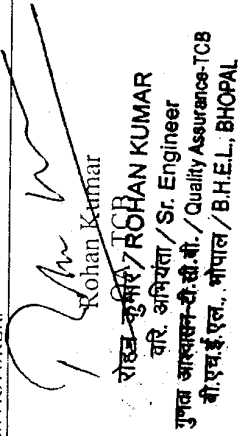 Rohan Kumar
QA-TCB
रोहन कुमार / ROHAN KUMAR
वरि. अभियंता / Sr. Engineer
गुणता आश्वासन-टी.सी.बी. / Quality Assurance-TCB
बी.एच.ई.एल., भोपाल / B.H.E.L., BHOPAL